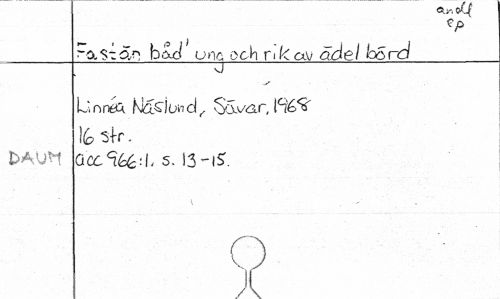 andl
ep
Fastän båd' ung och rik av ädel börd
Linnéa Näslund, Sävar, 1968
16 str.
DAUM acc 966:1. s. 13-15.